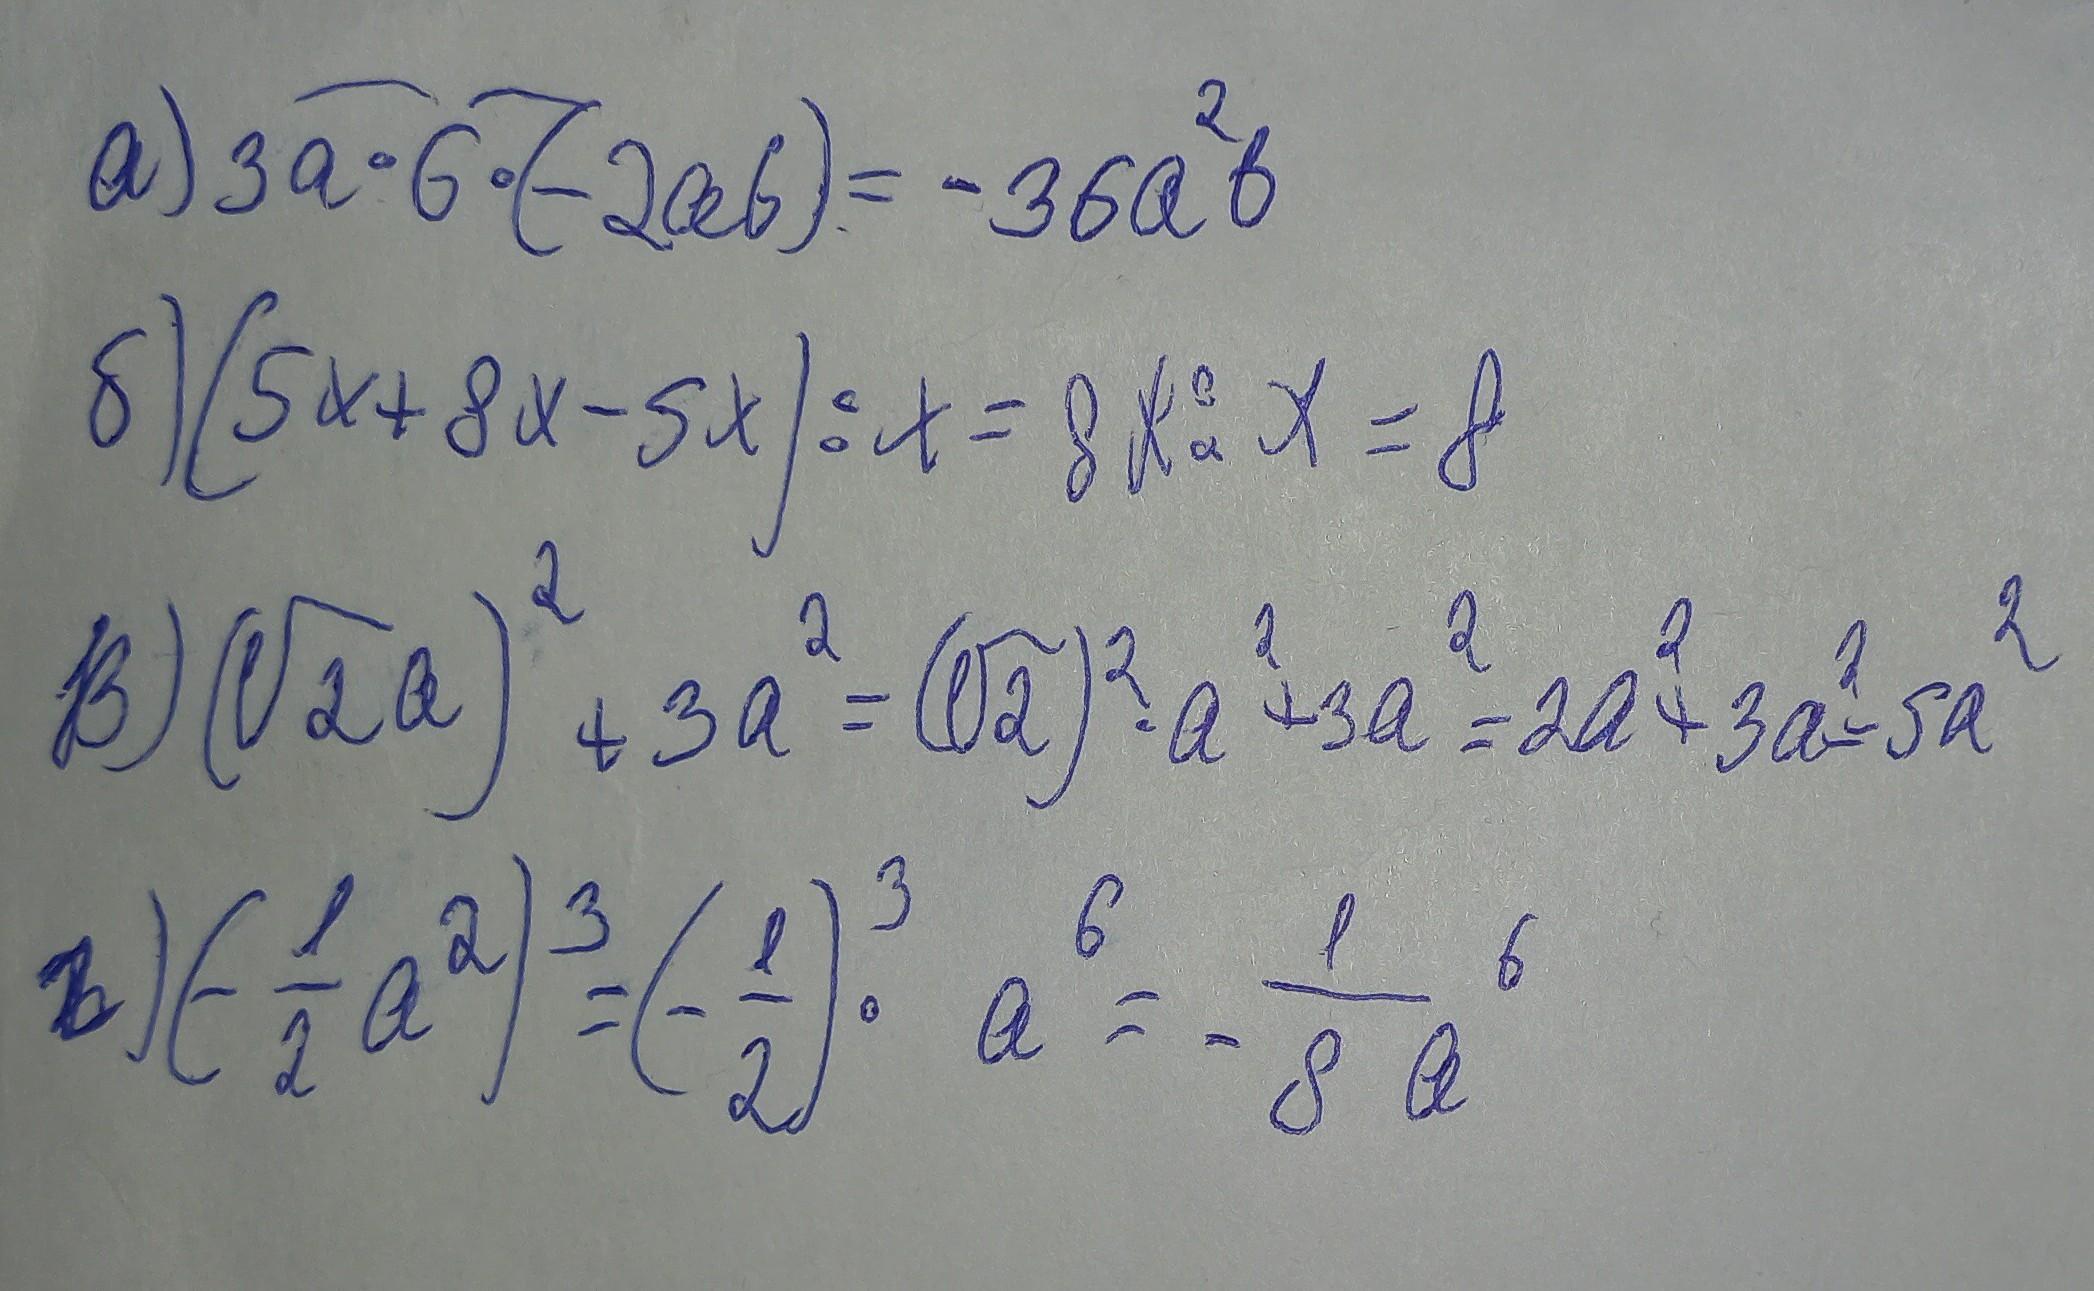 а) 3a · 6 · (-2ab) = -36a²b
б) (5x + 8x - 5x) : x = 8x : x = 8
в) (√2a)² + 3a² = (√2)² · a² + 3a² = 2a² + 3a² = 5a²
г) (-1/2 a²)³ = (-1/2)³ · a⁶ = -1/8 a⁶